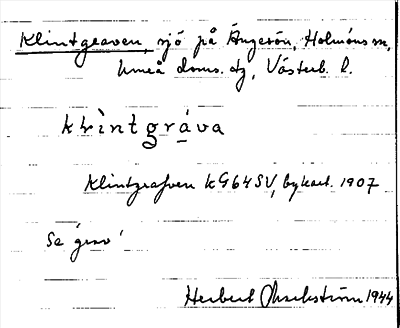 Klintgraven, sjö på Ängesön, Holmöns sn,
Umeå doms. dg, Västerb. l.
klìntgráva
Klintgrafven kG64SV, bykart. 1907
Se 'grav'
Herbert 1944